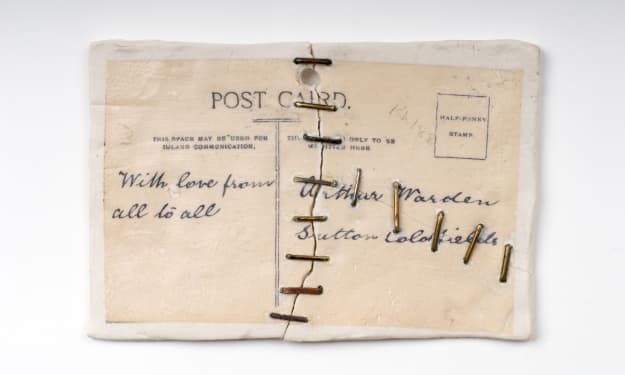 POST CARD.
HALF-PENNY
STAMP.
THIS SPACE MAY BE USED FOR
INLAND COMMUNICATION.
ONLY TO BE
HERE
With love from
all to all
Arthur Warden
Sutton Coldfield